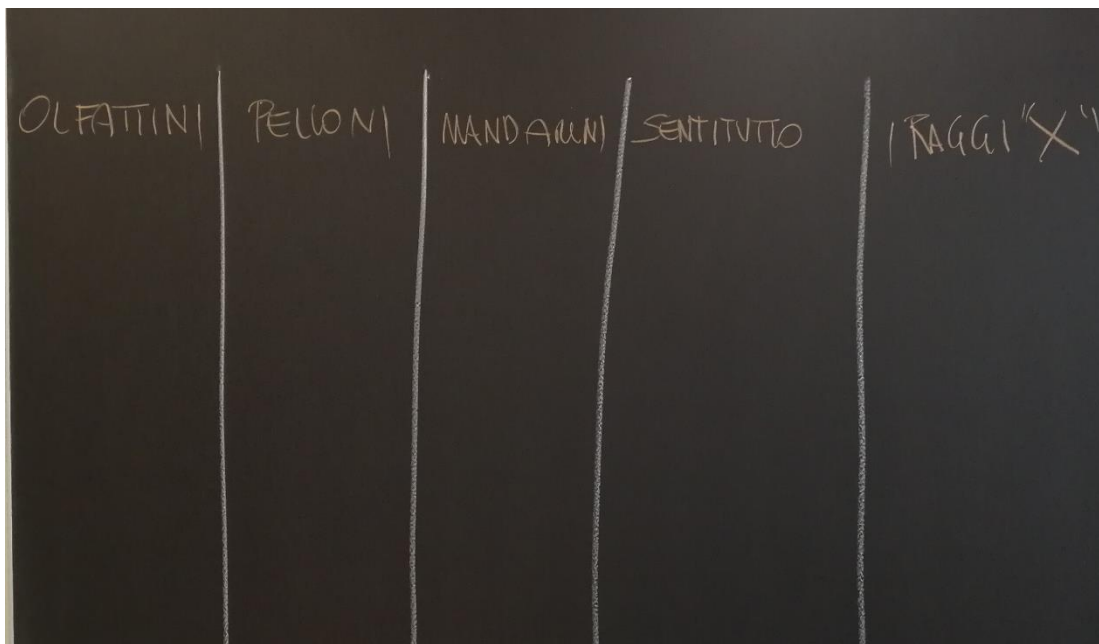 OLFATTINI PELLONI MANDARINI SENTITUTTO I RAGGI "X"